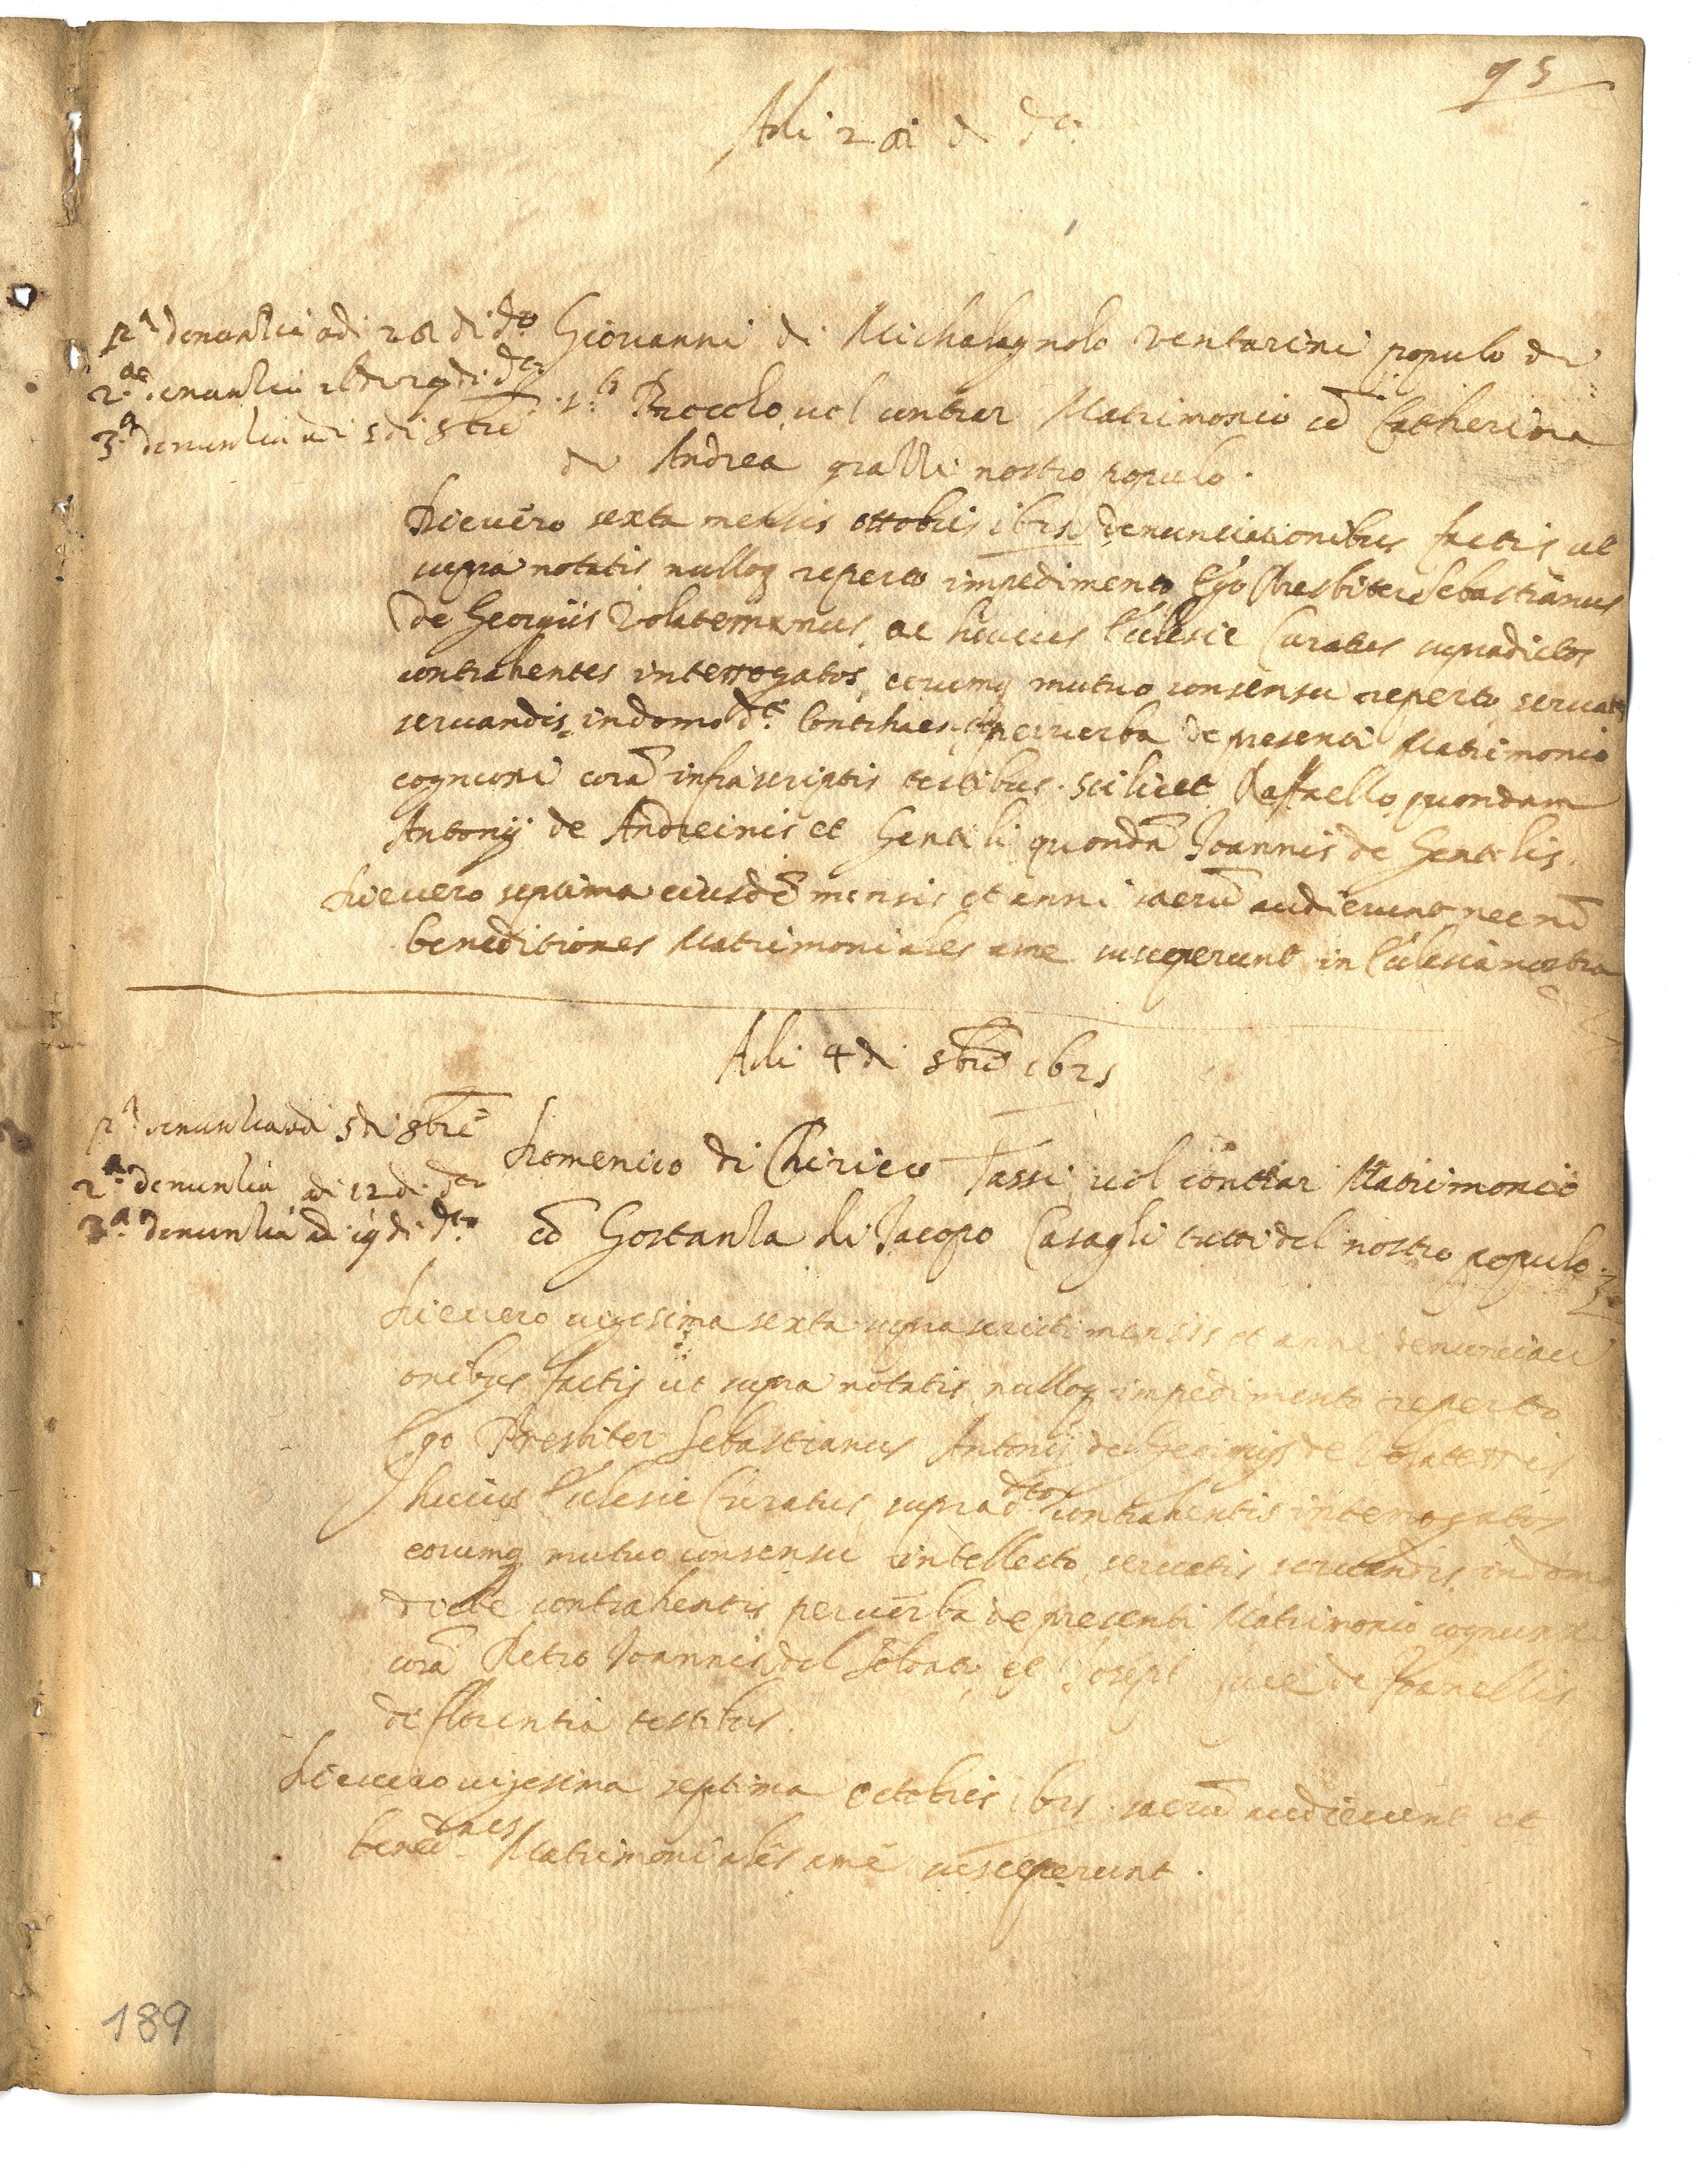 95
Adi 28 di d.º
p.ª denuntia adi 28 di d.º
2.ª denuntia adi 29 di d.º
3.ª denuntia adi 5 di 8bre
Giovanni di Michelagnolo Venturini populo di
S.to Procolo vol contrar Matrimonio cō Catherina
di Andrea nostro populo.
Die vero sexta mensis ottobris 1625 denunciationibus factis ut
supra notatis nulloq reperto impedimento, Ego Presbiter Sebastianus
de Georgiis Volaterranus, ac huius Ecclesie Curatus supradictos
contrahentes interrogatos, eorumq mutuo consensu reperto, servatis
servandis, in domo d.e Contrahentis per verba de presenti Matrimonio
cogniunxi corā infrascriptis testibus. scilicet Raffaello quondam
Antonij de Andreinis et Gentili quondā Joannis de Gentilis.
Die vero septima eiusdē mensis et anni sacrū audierunt nec nō
beneditiones Matrimoniales a me susceperunt in Ecclesia nostra
Adi 4 di 8bre 1625
p.ª denuntia adi 5 di 8bre
2.ª denuntia adi 12 di d.º
3.ª denuntia adi 19 di d.º
Domenico di Chirico Tassi vol contrar Matrimonio
cō Gostanza di Jacopo Casagli tutti del nostro populo.
Die vero vigesima sexta suprascritti mensis et anni denunciati
onibus factis ut supra notatis, nulloq impedimento reperto
Ego Presbiter Sebastianus Antonij de Georgijs de Volaterris
huius Ecclesie Curatus, suprad.tos contrahentis interrogatos
eorumq mutuo consensu intellecto, servatis servandis, in domo
dicte contrahentis per verba de presenti Matrimonio cogniunxi
corā Petro Joannis del et Josepf de
de florentia testibus.
Die vero vigesima septima Octobris 1625 sacrū audierunt et
bened.nes Matrimoniales a me susceperunt.
189